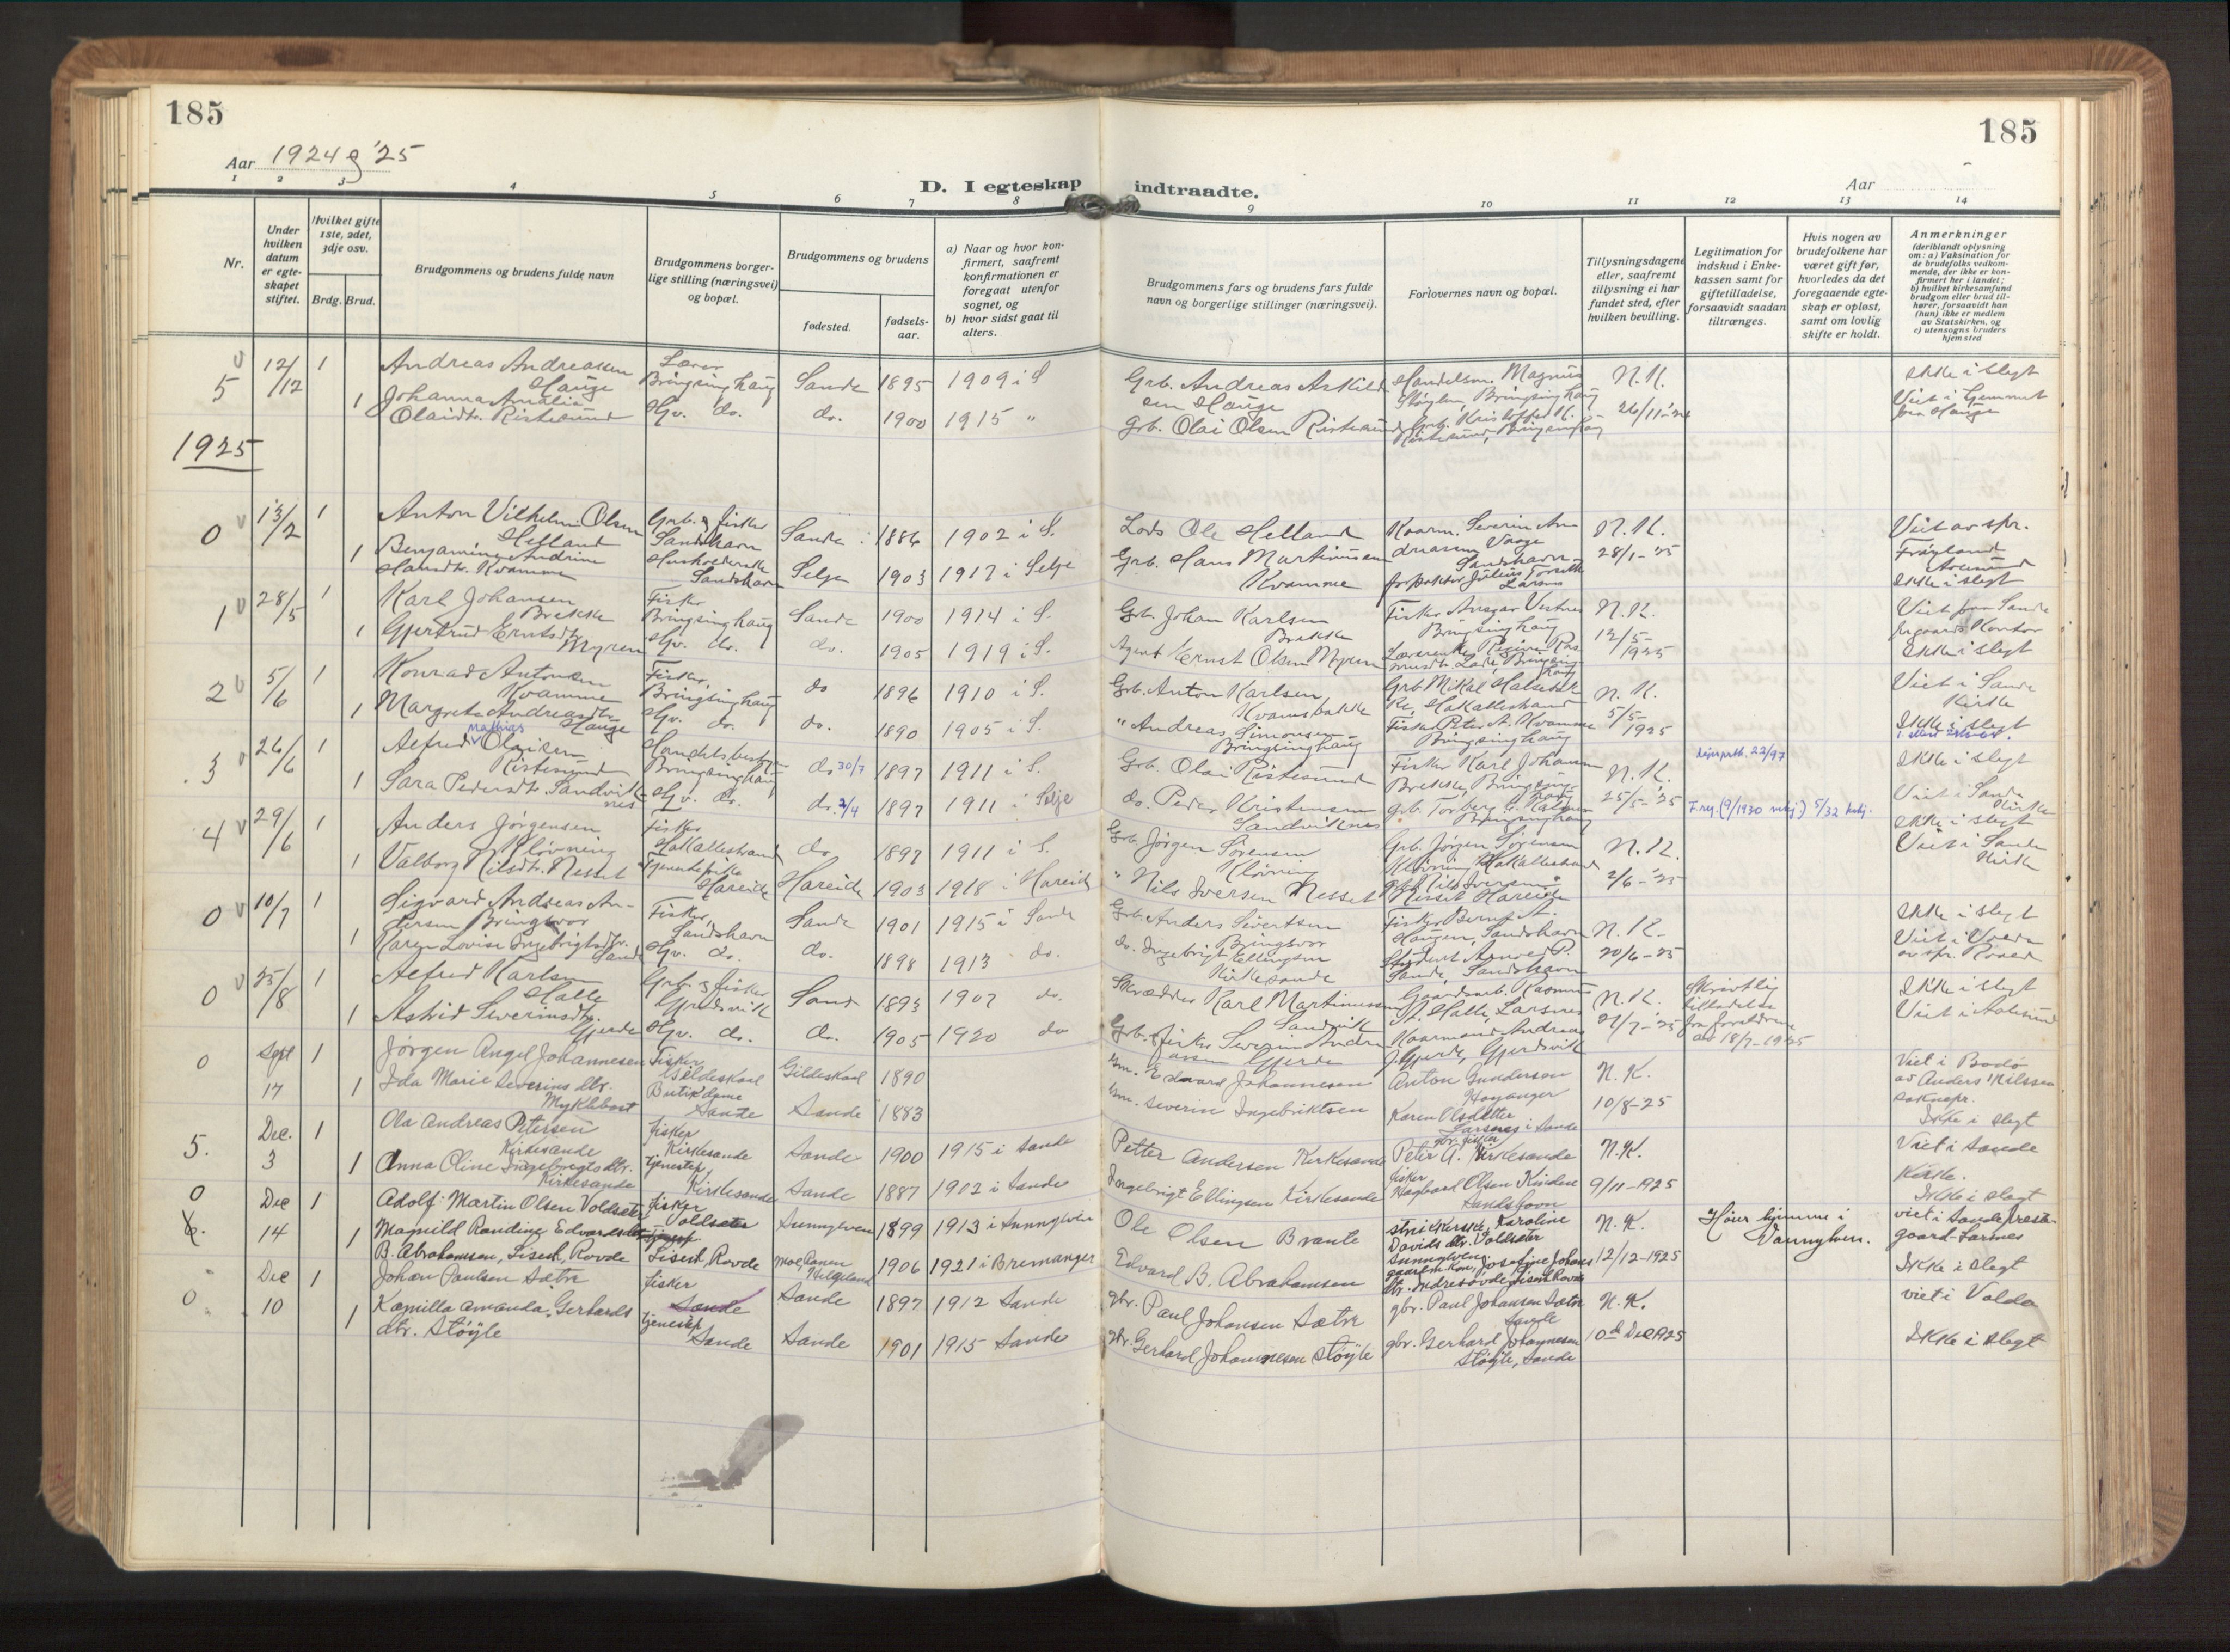 185
185
Aar 1924 og '25
D. I egteskap indtraadte.
Aar
1 2 3 4 5 6 7 8 9 10 11 12 13 14
Nr.
Under
hvilken
datum
er egte-
skapet
stiftet.
Hvilket gifte
1ste, 2det,
3dje osv.
Brdg. Brud.
Brudgommens og brudens fulde navn
Brudgommens borger-
lige stilling (næringsvei)
og bopæl.
Brudgommens og brudens
fødested.
fødsels-
aar.
a) Naar og hvor kon-
firmert, saafremt
konfirmationen er
foregaat utenfor
sognet, og
b) hvor sidst gaat til
alters.
Brudgommens fars og brudens fars fulde
navn og borgerlige stillinger (næringsvei).
Forlovernes navn og bopæl.
Tillysningsdagene
eller, saafremt
tillysning ei har
fundet sted, efter
hvilken bevilling.
Legitimation for
indskud i Enke-
kassen samt for
giftetilladelse,
forsaavidt saadan
tiltrænges.
Hvis nogen av
brudefolkene har
været gift før,
hvorledes da det
foregaaende egte-
skap er opløst,
samt om lovlig
skifte er holdt.
Anmerkninger
(deriblandt oplysning
om: a) Vaksination for
de brudefolks vedkom-
mende, der ikke er kon-
firmert her i landet;
b) hvilket kirkesamfund
brudgom eller brud til-
hører, forsaavidt han
(hun) ikke er medlem
av Statskirken, og
c) utensogns bruders
hjemsted
5 12/12 1 Andreas Andreassen Hauge Lærer Bringsinghaug Sande 1895 1909 i S Grb. Andreas Askildsen Hauge Handelsm. Magnus Støylen, Bringsinghaug N.K. Ikke i slegt
1 Johanna Amalie Olaidtr. Ristesund Hv. do. do. 1900 1915 " Grb. Olai Olsen Ristesund Grb. Kristoffer K. Ristesund, Bringsinghaug 26/11-'24 Viet i hjemmet
1925
0 13/2 1 Anton Vilhelm Olsen Helland Grb. og fisker Sandshavn Sande 1886 1902 i S. Lods Ole Helland Kaarm. Severin Andreasen Vaage Sandshavn N.K. Viet av spr. Frøyland
1 Benjamine Andrine Hansdtr. Kvamme Sandshavn Selje 1903 1917 i Selje Grb. Hans Martinussen Kvamme 28/1-'25 Ikke i slegt
1 28/5 1 Karl Johansen Brekke Fisker Bringsinghaug Sande 1900 1914 i S. Grb. Johan Karlsen Brekke Fisker Ansgar Bringsinghaug N.K. Viet paa Sande
1 Gjertrud Ernstdtr. Myren Hv. do. do. 1905 1919 i S. Agent Ernst Olsen Myren 12/5-1925 Ikke i slegt
2 5/6 1 Konrad Antonsen Kvamme Fisker, Bringsinghaug do 1896 1910 i S. Grb. Anton Karlsen Kvamsbakke Grb. Mikal Hakallestrand N.K. Viet i Sande Kirke
1 Margrete Andreasdtr. Hauge Hv. do. do. 1890 1905 i S. " Andreas Simonsen Bringsinghaug Fisker Peter A. Kvamme Bringsinghaug 5/5-1925 Ikke i slegt
3 26/6 1 Alfred Mathias Olaisen Ristesund Bringsinghaug do 30/7 1897 1911 i S. Grb. Olai Ristesund Fisker Karl Johansen Brekke, Bringsinghaug N.K. 22/97 Ikke i slegt
1 Sara Pedersdtr. Sandviknes Hv. do. do. 2/4 1897 1911 i Selje do. Peder Kristensen Sandviknes Bringsinghaug 25/5-'25 5/32 Viet i Sande Kirke
4 29/6 1 Anders Jørgensen Kløvning Fisker Hakallestrand do 1897 1911 i S. Grb. Jørgen Sørensen Kløvning Grb. Jørgen Sørensen Kløvning Hakallestrand N.K. Ikke i slegt
1 Valborg Nilsdtr. Nesset Tjenestepike Hareide Hareide 1903 1918 i Hareide " Nils Iversen Nesset Nesset Hareide 2/6-'25 Viet i Sande Kirke
0 10/7 1 Sigvard Andreas Andersen Bringsvor Fisker, Sandshavn Sande 1901 1915 i Sande Grb. Anders Sivertsen Bringsvor Fisker Bernt A. Haugen, Sandshavn N.K. Ikke i slegt
1 Karen Lovise Ingebrigtsdtr. Sande Hv. do. do. 1898 1913 do. do. Ingebrigt Ellingsen Kirkesande Student Arnold P. Sande, Sandshavn 20/6-25 Viet i Volden
0 25/8 1 Alfred Karlsen Halle Grb. og fisker Gjerdsvik Sande 1893 1907 do. Skrædder Karl Martinussen Gaardarb. Rasmus A. Halle, Larsnes N.K. Skrivtlig tilladelse fra forældrene av 18/7-1925 Ikke i slegt
1 Astrid Severinsdtr. Gjerde Hv. do. do. 1905 1920 do Grb. & fisker Severin Andreassen Gjerde Kaarmand Andreas J. Gjerde, Gjerdsvik 21/7-'25 Viet i Aalesund
0 Sept 17 1 Jørgen Angel Johannesen Fisker Gildeskaal Gildeskaal 1890 Gm. Edvard Johannesen Anton Gundersen Høyanger N.K. Viet i Bodø av Anders Nilssen sokнepr.
1 Ida Marie Severins dtr. Myklebost Butikdame Sande Sande 1883 Gm. Severin Ingebriktsen Karen Olsdatter Larsnes i Sande 10/8-25 Ikke i slegt
5. Dec. 3 1 Ola Andreas Petersen Kirkesande fisker Kirkesande Sande 1900 1915 i Sande Petter Andersen Kirkesande gbr. fisker Peter A. Kirkesande N.K. Viet i Sande Kirke.
1 Anna Oline Ingebrigts dtr. Kirkesande tjenestep. Kirkesande Sande 1887 1902 i Sande Ingebrigt Ellingsen Kirkesande fisker Hagbard Olsen Sandshavn 9/11-1925 Ikke i slegt
0 6. Dec 14 1 Adolf Martin Olsen Voldsæter fisker Voldsæter Sunnylven 1899 1913 i Sunnylven Ole Olsen Brante Karoline Davids dtr. Voldsæter Sunnylven N.K. Hører hjemme i Sunnylven. viet i Sande prestegaard-Larsnes
1 Magnild Randine Edvardsdtr. B. Abrahamsen, Liset, Rovde Liset, Rovde Mo, Ranen Helgeland 1906 1921 i Bremanger Edvard B. Abrahamsen 12/12-1925 Ikke i slegt
0 Dec 10 1 Johan Paulsen Sætre fisker Sande Sande 1897 1912 Sande gbr. Paul Johansen Sætre gbr. Paul Johansen Sætre Sande N.K. viet i Volda
1 Kamilla Amanda Gerhards dtr. Støyle tjenestep. Sande Sande 1901 1915 Sande gbr. Gerhard Johannesen Støyle gbr. Gerhard Johannesen Støyle, Sande 10de Dec 1925 Ikke i slegt